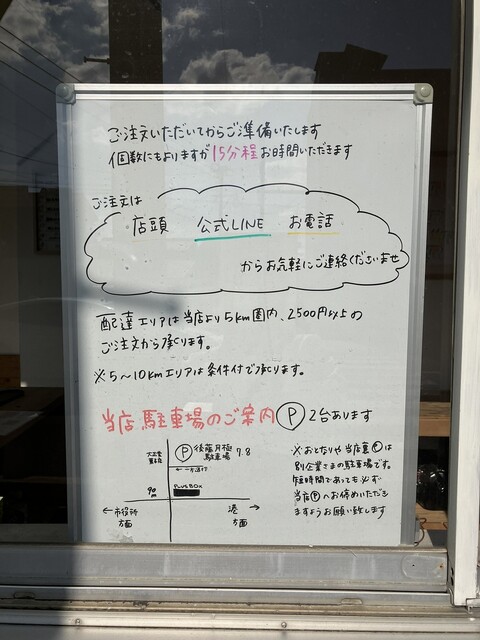 ご注文いただいてからご準備いたします
個数にもよりますが15分程お時間いただきます
ご注文は
店頭 公式LINE お電話
からお気軽にご連絡くださいませ
配達エリアは当店より5km圏内、2500円以上の
ご注文から承ります。
※5〜10kmエリアは条件付で承ります。
当店駐車場のご案内 P 2台あります
P 後藤月極
駐車場 7.8
←一方通行
PLUS BOX
←市役所
方面
港 →
方面
※おとなりや当店裏Pは
別企業さまの駐車場です。
短時間であっても必ず
当店Pへお停めいただき
ますようお願い致します